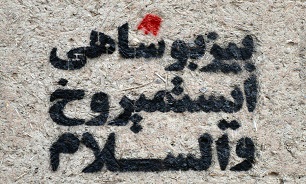 بیزبو شاطی
ایستمیروخ
والسلام